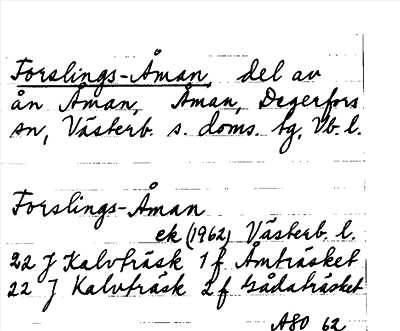 Forslings-Åman, del av
ån Åman, Åman, Degerfors
sn, Västerb. s. doms. tg, Vb. l.
Forslings-Åman
ek (1962) Västerb. l.
22 J Kalvträsk 1 f Åmträsket
22 J Kalvträsk 2 f Gadaträsket
ASO 62